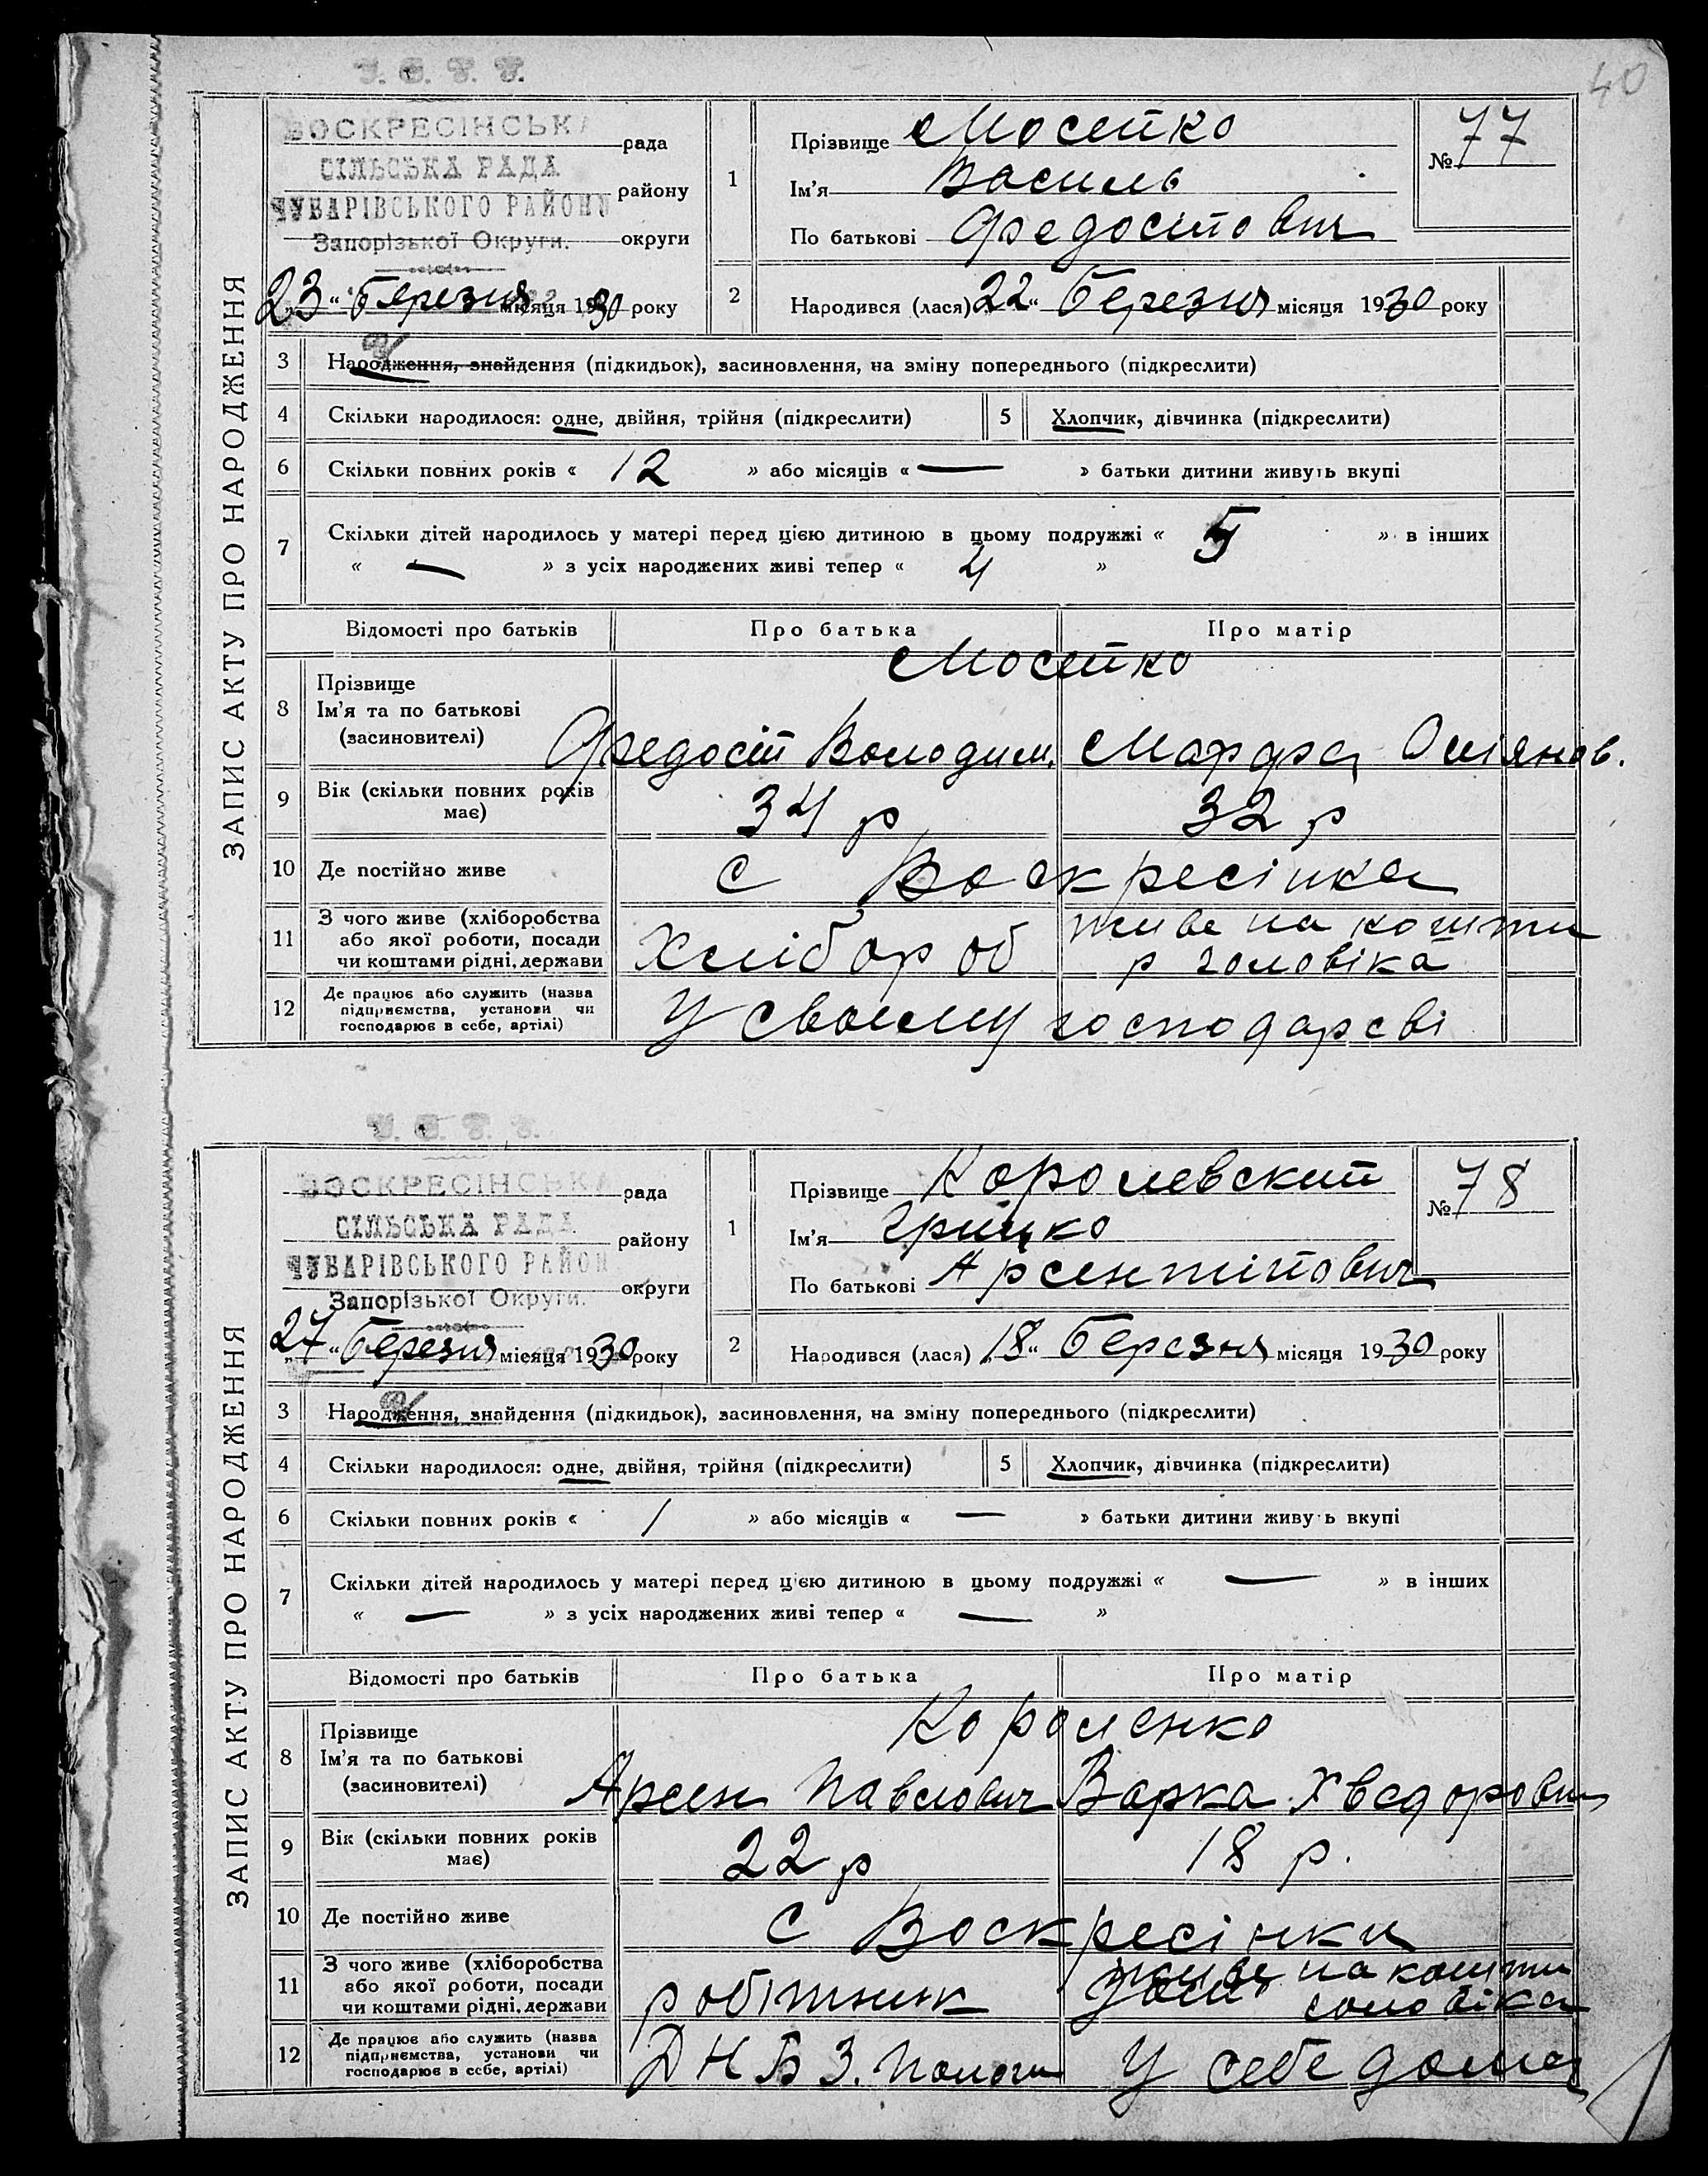 40
У. С. Р. Р.
ВОСКРЕСІНСЬКА рада
СІЛЬСЬКА РАДА району
ЧУБАРІВСЬКОГО РАЙОНУ
Запорізької Округи. округи
23 „ березня місяця 1930 року
1
Прізвище Мосейко
Ім'я Василь
По батькові Федосійович
№ 77
2 Народився (лася) 22 „ березня місяця 1930 року
ЗАПИС АКТУ ПРО НАРОДЖЕННЯ
3 Народження, знайдення (підкидьок), засиновлення, на зміну попереднього (підкреслити)
4 Скільки народилося: одне, двійня, трійня (підкреслити) 5 Хлопчик, дівчинка (підкреслити)
6 Скільки повних років « 12 » або місяців « — » батьки дитини живуть вкупі
7 Скільки дітей народилось у матері перед цією дитиною в цьому подружжі « 5 » в інших
« — » з усіх народжених живі тепер « 4 »
Відомості про батьків Про батька Про матір
8 Прізвище
Ім'я та по батькові
(засиновителі)
Мосейко
Федосій Володим. Марфа Омiянов.
9 Вік (скільки повних років
має)
34 р 32 р
10 Де постійно живе с Воскресінка
11 З чого живе (хліборобства
або якої роботи, посади
чи коштами рідні, держави
Хлібороб живе на кошти
р чоловіка
12 Де працює або служить (назва
підприємства, установи чи
господарює в себе, артілі)
У своєму господарсві
У. С. Р. Р.
ВОСКРЕСІНСЬКА рада
СІЛЬСЬКА РАДА району
ЧУБАРІВСЬКОГО РАЙОН
Запорізької Округи. округи
27 „ березня місяця 1930 року
1
Прізвище Королевский
Ім'я Грицко
По батькові Арсентійович
№ 78
2 Народився (лася) 18 „ березня місяця 1930 року
ЗАПИС АКТУ ПРО НАРОДЖЕННЯ
3 Народження, знайдення (підкидьок), засиновлення, на зміну попереднього (підкреслити)
4 Скільки народилося: одне, двійня, трійня (підкреслити) 5 Хлопчик, дівчинка (підкреслити)
6 Скільки повних років « 1 » або місяців « — » батьки дитини живуть вкупі
7 Скільки дітей народилось у матері перед цією дитиною в цьому подружжі « — » в інших
« — » з усіх народжених живі тепер « — »
Відомості про батьків Про батька Про матір
8 Прізвище
Ім'я та по батькові
(засиновителі)
Короленко
Арсен Павлович Варка Хведоровн
9 Вік (скільки повних років
має)
22 р 18 р.
10 Де постійно живе с Воскресінки
11 З чого живе (хліборобства
або якої роботи, посади
чи коштами рідні, держави
робітник живе на кошти
чоловіка
12 Де працює або служить (назва
підприємства, установи чи
господарює в себе, артілі)
Д Н Б З. Пологи У себе дома